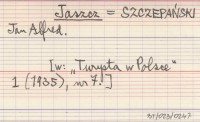 Jaszcz = SZCZEPAŃSKI
Jan Alfred.
[w: „Turysta w Polsce"
1 (1935), nr 7.]
BT/023/0247